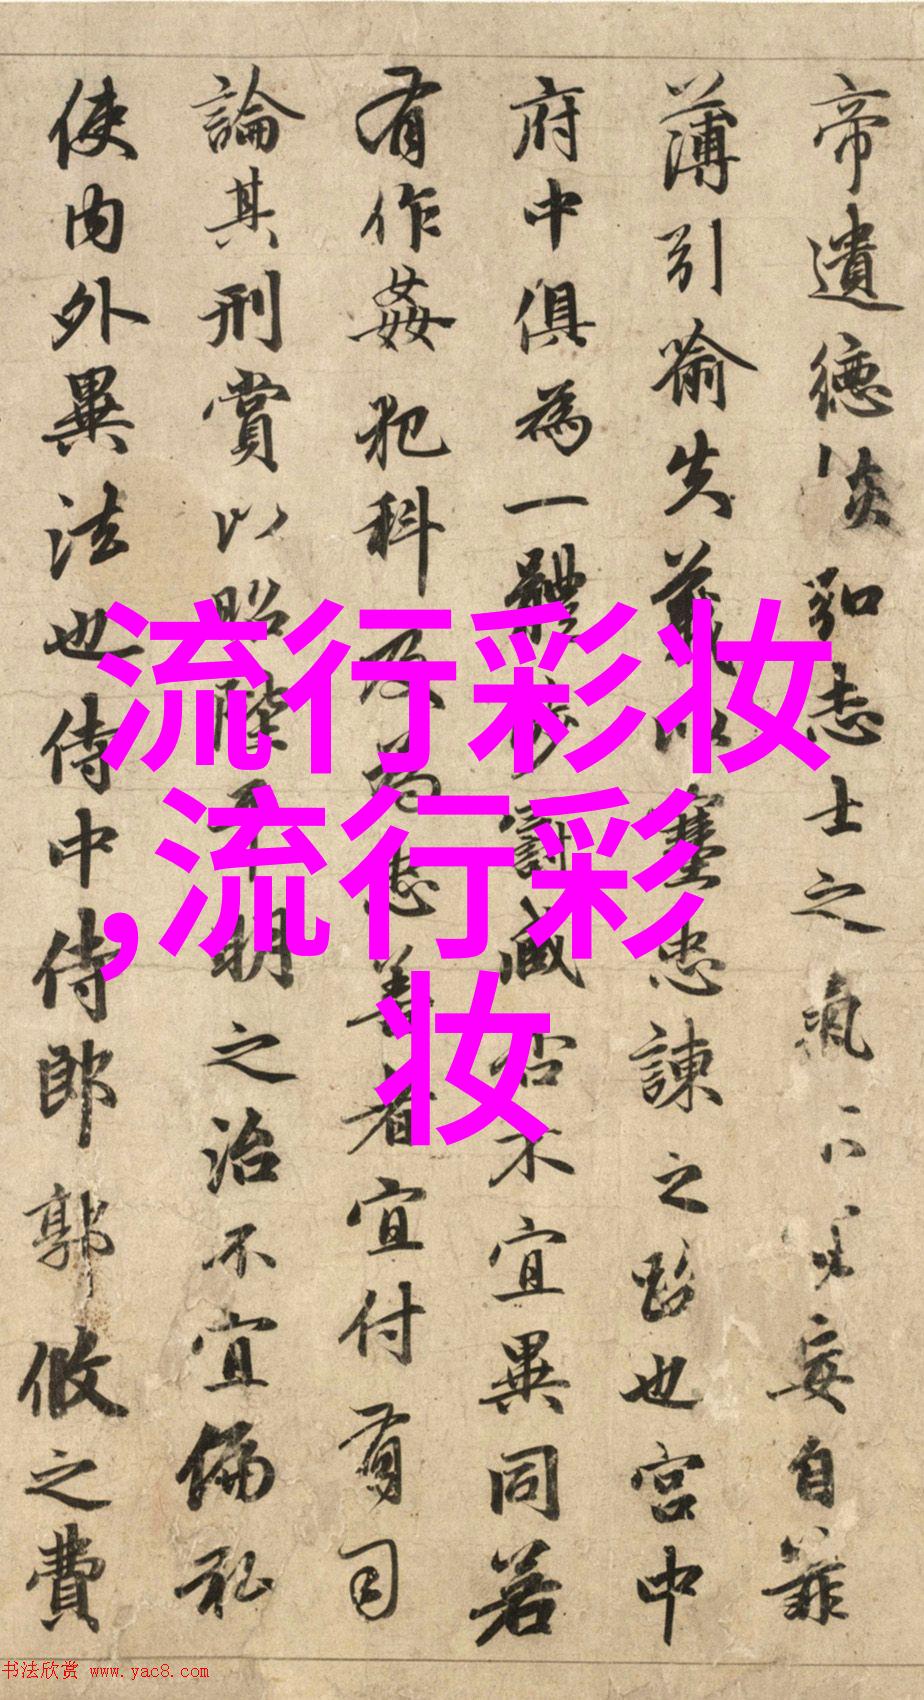 帝遺德恢弘志士之氣妄自菲
薄引喻失義以塞忠諫之路也宮中
府中俱為一體陟罰臧否不宜異同若
有作姦犯科及為忠善者宜付有司
論其刑賞以昭陛平明之治不宜偏私
使內外異法也侍中侍郎郭攸之費
流行彩妆
,流行彩
妆
书法欣赏 www.yac8.com